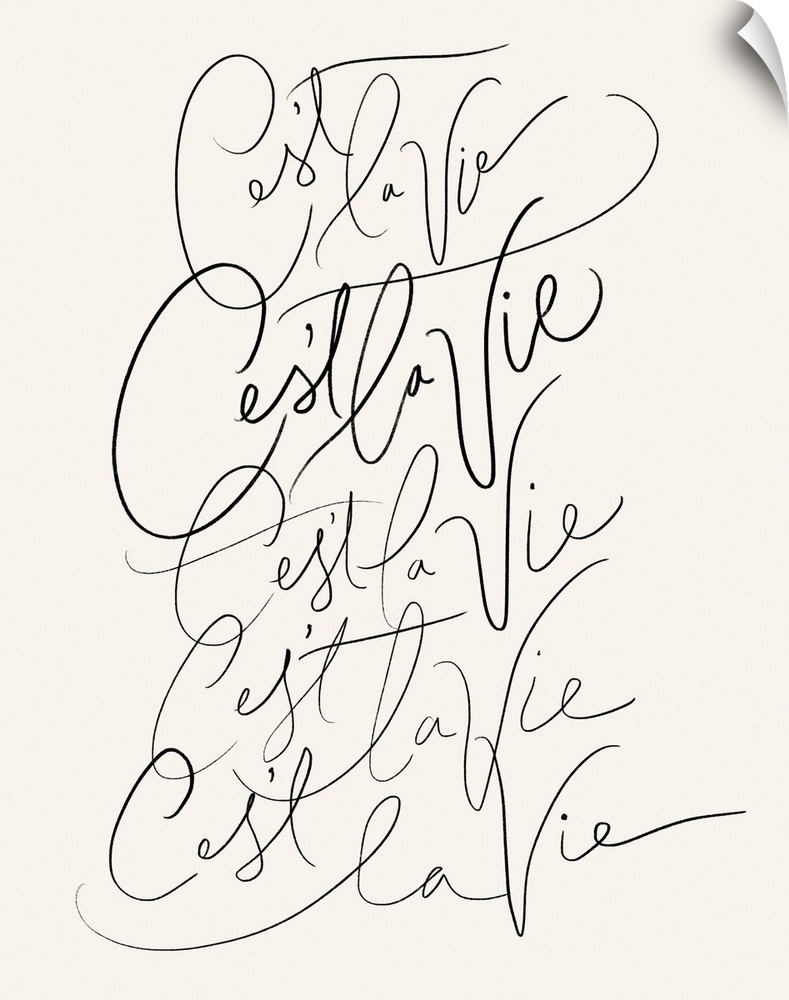 C'est la Vie
C'est la Vie
C'est la Vie
C'est la Vie
C'est la Vie